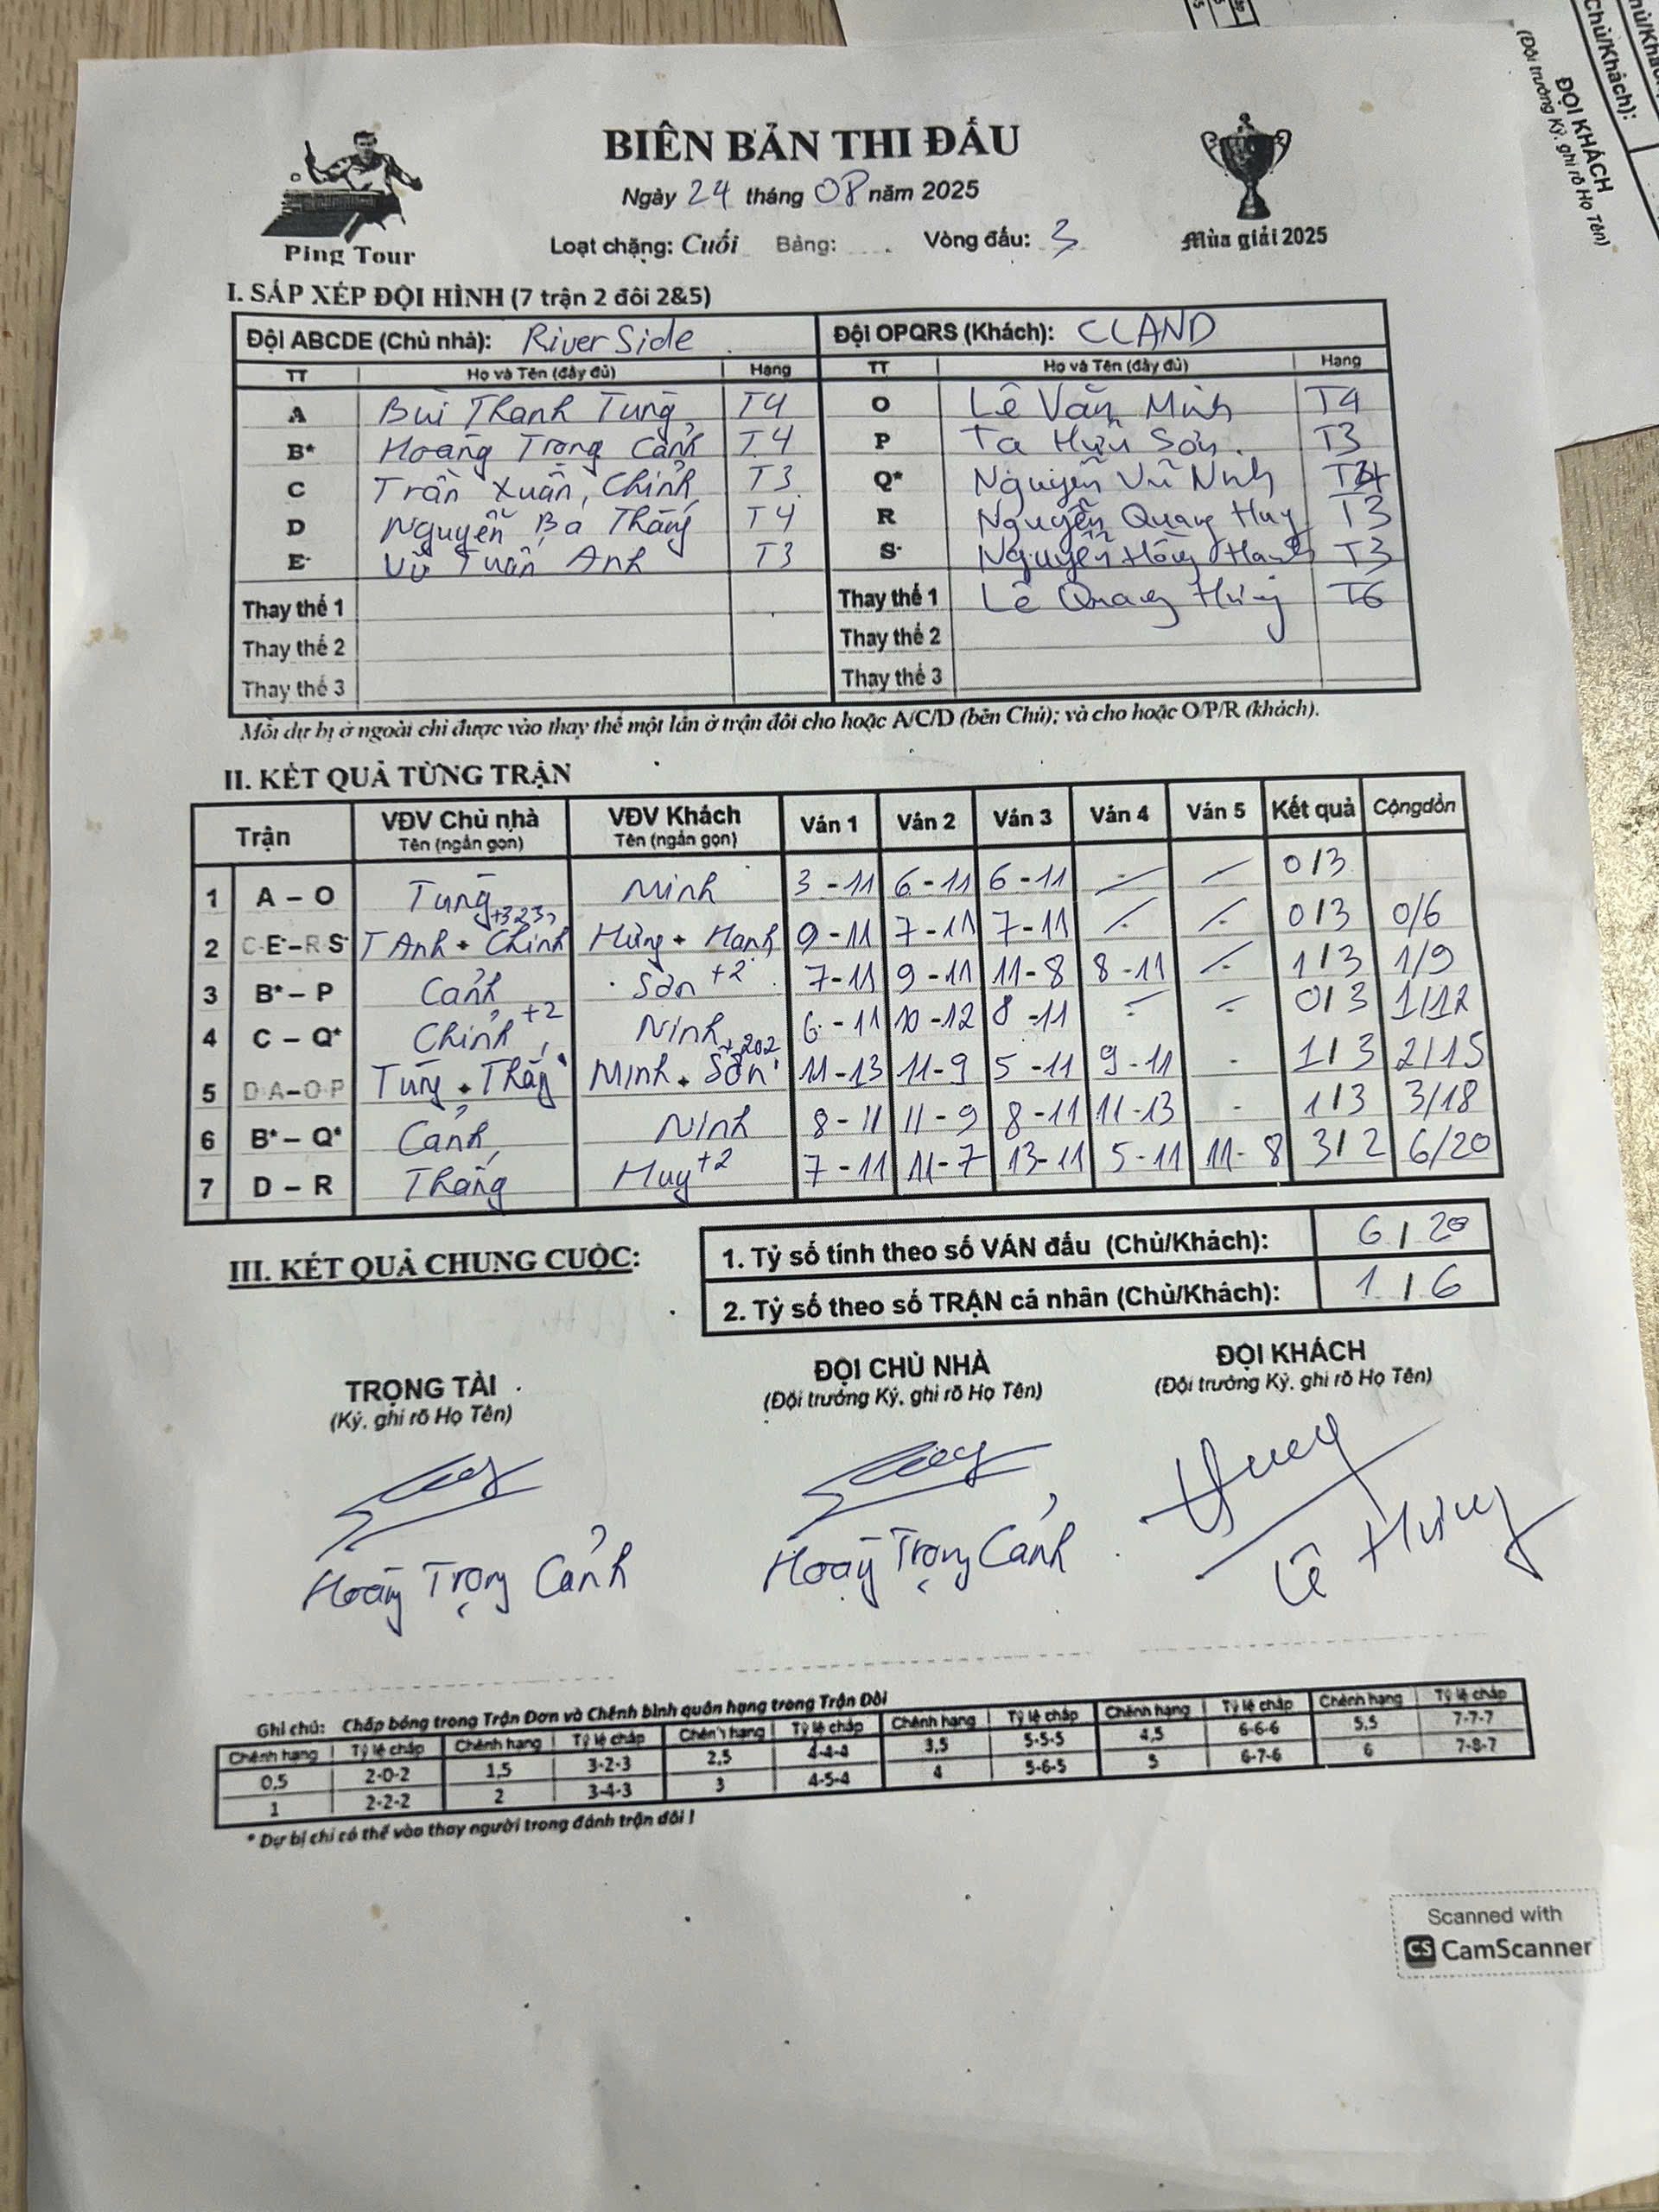 BIÊN BẢN THI ĐẤU
Ngày 24 tháng 08 năm 2025
Loạt chặng: Cuối Bảng: .... Vòng đấu: 3
Ping Tour
Mùa giải 2025
I. SẮP XẾP ĐỘI HÌNH (7 trận 2 đôi 2&5)
Đội ABCDE (Chủ nhà): River Side Đội OPQRS (Khách): CLAND
TT Họ và Tên (đầy đủ) Hạng TT Họ và Tên (đầy đủ) Hạng
A Bùi Thanh Tùng T4 O Lê Văn Minh T4
B* Hoàng Trọng Cảnh T4 P Tạ Hữu Sơn T3
C Trần Xuân Chỉnh T3 Q* Nguyễn Vũ Ninh
D Nguyễn Bá Thắng T4 R Nguyễn Quang Huy T3
E- Vũ Tuấn Anh T3 S- Nguyễn Hồng Hạnh T3
Thay thế 1 Thay thế 1 Lê Quang Hưng T6
Thay thế 2 Thay thế 2
Thay thế 3 Thay thế 3
Mỗi dự bị ở ngoài chỉ được vào thay thế một lần ở trận đôi cho hoặc A/C/D (bên Chủ); và cho hoặc O/P/R (khách).
II. KẾT QUẢ TỪNG TRẬN
Trận VĐV Chủ nhà Tên (ngắn gọn) VĐV Khách Tên (ngắn gọn) Ván 1 Ván 2 Ván 3 Ván 4 Ván 5 Kết quả Cộng dồn
1 A – O Tùng Minh 3-11 6-11 6-11 - - 0/3
2 C-E–R-S- T Anh + Chỉnh +323 Hưng + Hạnh 9-11 7-11 7-11 - - 0/3 0/6
3 B* – P Cảnh Sơn +2 7-11 9-11 11-8 8-11 - 1/3 1/9
4 C – Q* Chỉnh +2 Ninh 6-11 10-12 8-11 - - 0/3 1/12
5 D-A–O-P Tùng + Thắng Minh + Sơn +202 11-13 11-9 5-11 9-11 - 1/3 2/15
6 B* – Q* Cảnh Ninh 8-11 11-9 8-11 11-13 - 1/3 3/18
7 D – R Thắng Huy +2 7-11 11-7 13-11 5-11 11-8 3/2 6/20
III. KẾT QUẢ CHUNG CUỘC:
1. Tỷ số tính theo số VÁN đấu (Chủ/Khách): 6/20
2. Tỷ số theo số TRẬN cá nhân (Chủ/Khách): 1/6
TRỌNG TÀI ĐỘI CHỦ NHÀ ĐỘI KHÁCH
(Ký, ghi rõ Họ Tên) (Đội trưởng Ký, ghi rõ Họ Tên) (Đội trưởng Ký, ghi rõ Họ Tên)
Hoàng Trọng Cảnh Hoàng Trọng Cảnh Lê Hưng
Ghi chú: Chấp bóng trong Trận Đơn và Chênh bình quân hạng trong Trận Đôi
Chênh hạng Tỷ lệ chấp Chênh hạng Tỷ lệ chấp Chênh hạng Tỷ lệ chấp Chênh hạng Tỷ lệ chấp Chênh hạng Tỷ lệ chấp Chênh hạng Tỷ lệ chấp
0,5 2-0-2 1,5 3-2-3 2,5 4-4-4 3,5 5-5-5 4,5 6-6-6 5,5 7-7-7
1 2-2-2 2 3-4-3 3 4-5-4 4 5-6-5 5 6-7-6 6 7-8-7
* Dự bị chỉ có thể vào thay người trong đánh trận đôi !
Scanned with
CS CamScanner
Chủ/Khách):
ĐỘI KHÁCH
(Đội trưởng Ký, ghi rõ Họ Tên)